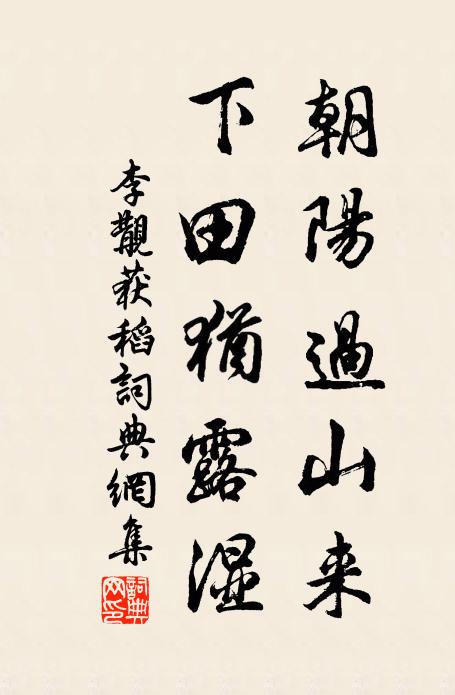 朝陽過山来
下田猶露濕
李覯获稻詞典網集
詞典网印